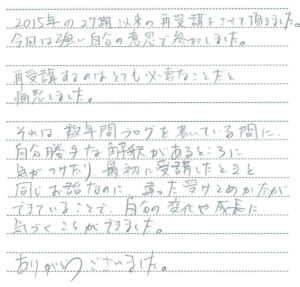 2015年の27期以来の再受講をさせて頂きました。
今回は強い自分の意思で参加しました。
再受講するのはとても必要なことだと
痛感しました。
それは数年間ブログを書いている間に、
自分勝手な解釈があるところに
気がつけたり 最初に受講したときと
同じお話なのに、違った受けとめかたが
できていることで、自分の変化や成長に
気づくことができました。
ありがとうございました。